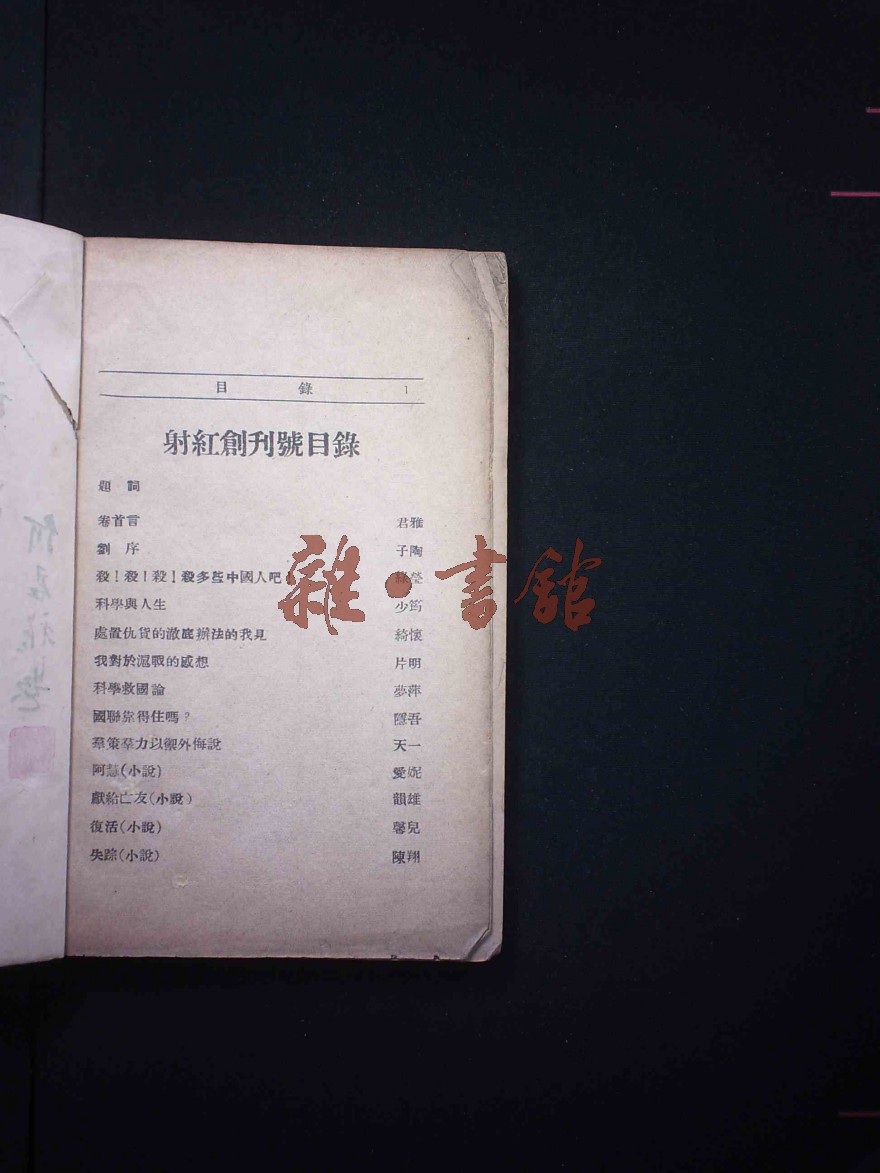 目 錄 1
射紅創刊號目錄
題 詞
卷首言 君雅
劉 序 子陶
殺！殺！殺！殺多些中國人吧！ 瑩
科學與人生 少筠
處置仇貨的澈底辦法的我見 綺懷
我對於滬戰的感想 片明
科學救國論 夢萍
國聯靠得住嗎？ 隱吾
羣策羣力以禦外侮說 天一
阿慧(小說) 愛妮
獻給亡友(小說) 韻雄
復活(小說) 馨兒
失踪(小說) 陳翔
雜·書館